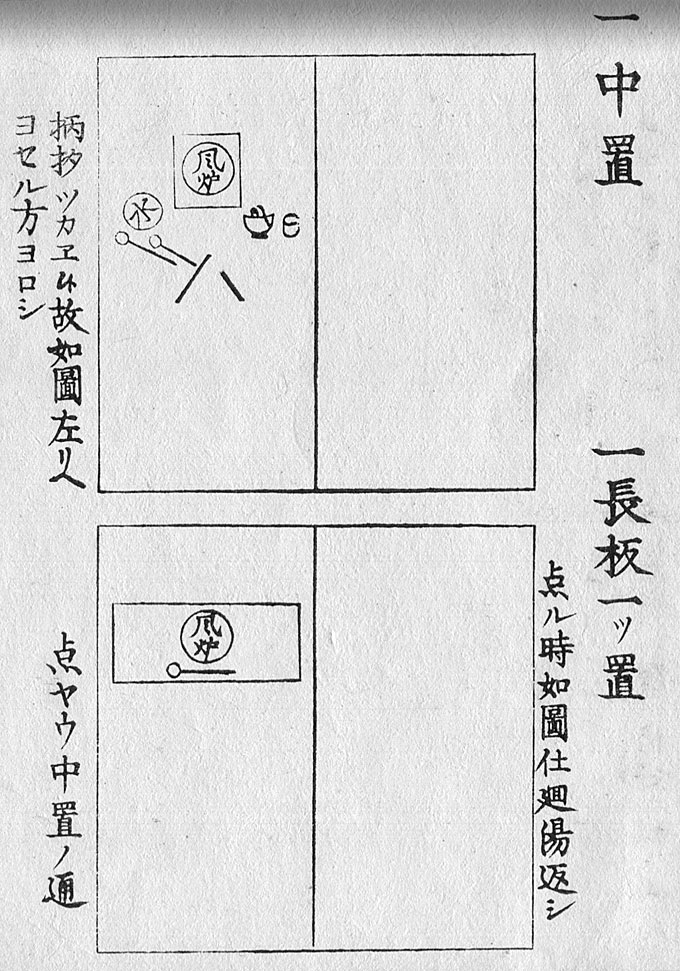 一中置
風炉
水
柄杓ツカヱ故如圖左リヘ
ヨセル方ヨロシ
一長板一ツ置
点ル時如圖仕廻湯返シ
風炉
点ヤウ中置ノ通